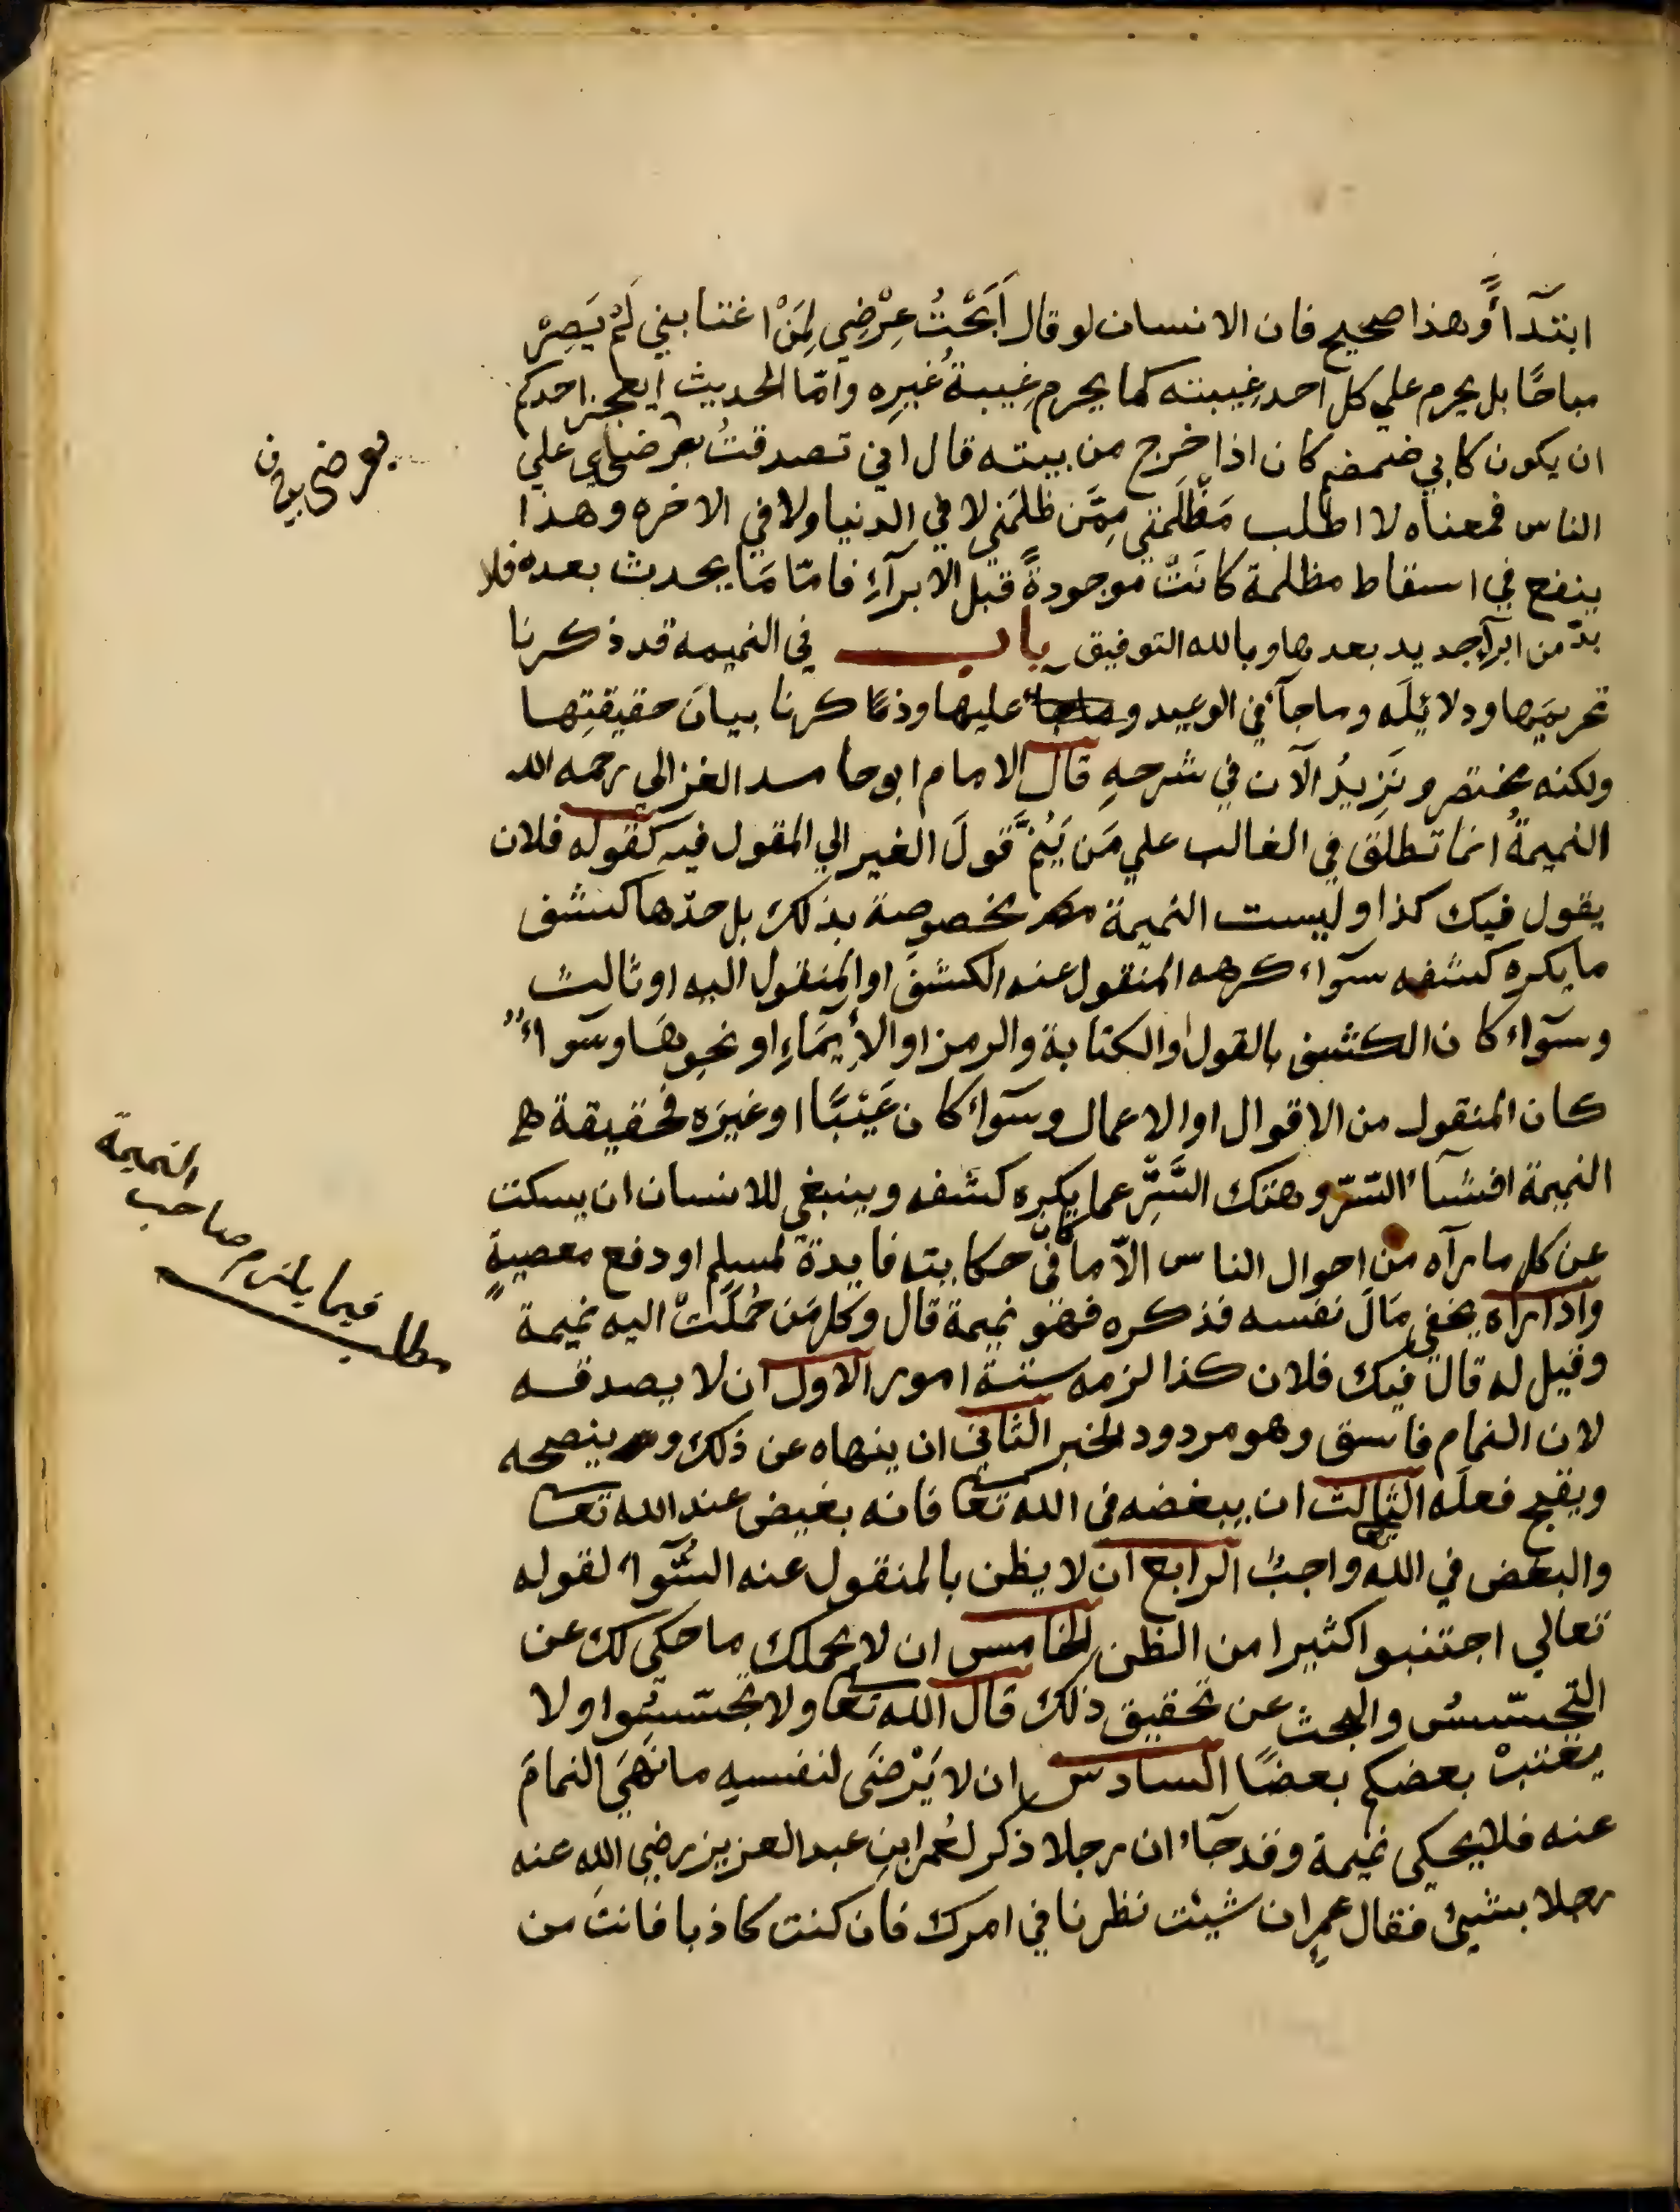 ابتدآءً وهذا صحيح فان الانسان لو قال اَبَحْتُ عِرْضِي لِمَنْ اغتابني لَمْ يَصِرْ
مباحًا بل يحرم علي كل احد غِيبته كما يحرم غِيبةُ غيرِه وامّا الحديث ايعجز احدكم
ان يكون كابي ضمضم كان اذا خرج من بيته قال اني تصدقتُ بعرضي علي
الناس فمعناه لا اطلب مَظْلَمَتي مِمَّن ظلمَني لا في الدنيا ولا في الاخره وهذا
ينفع في اسقاط مظلمة كانَتْ موجودةً قبل الابرآءِ فامّا مَا يحدث بعده فلا
بدّ من ابرآءٍ جديد بعدها وبالله التوفيق باب في النميمه قد ذكرنا
تحريمَها ودلائِلَه وما جآء في الوعيد عليها وذكرنا بيانَ حقيقتِها
ولكنه مختصر ونَزِيدُ الآن في شرحهِ قال الامام ابو حامد الغزالي رحمه الله
النميمةُ انما تطلق في الغالب علي مَن يَنُمُّ قولَ الغير الي المقول فيه كقوله فلان
يقول فيك كذا وليست النميمة مخصوصة بذلك بل حدّها كشف
ما يكره كشفه سوآء كرهه المنقول عنه الكشفَ او المنقول اليه او ثالث
وسوآء كان الكشف بالقول او الكتابة والرمز او الاِيمَاءِ او نحوِهَا وسوآء
كان المنقول من الاقوال او الاعمال وسوآء كان عَيْبًا او غيرَه فحقيقة
النميمة افشآء السّرّ وهتك السِّتْر عما يكره كشفه وينبغي للانسان ان يسكت
عن كل ما رآه من احوال الناس الّا ما في حكايته فايدة لمسلِم او دفع معصيةٍ
واذا رآه يخفي مَالَ نفسه فذكره فهو نميمة قال وكل مَن حُمِلَتْ اليه نميمة
وقيل له قال فيك فلان كذا لزمه ستة امور الاول ان لا يصدقه
لان النمام فاسق وهو مردود الخبر الثاني ان ينهاه عن ذلك وينصحه
ويقبح فعلَه الثالث ان يبغضه في الله تعا فانه بغيض عند الله تعا
والبغض في الله واجبٌ الرابع ان لا يظن بالمنقول عنه السُّوآء لقوله
تعالي اجتنبوا كثيرا من الظن الخامس ان لا يحملك ما حكي لك عن
التجسّسُ والبحث عن تحقيق ذلك قال الله تعا ولا تجسّسُوا ولا
يغتبْ بعضكم بعضًا السادس ان لا يَرْضَى لنفسهِ ما نَهَي النمامَ
عنه فلا يحكي نميمة وقد جآء ان رجلا ذكر لعُمر ابنِ عبد العزيز رضي الله عنه
رجلا بشيئ فقال عمر ان شيئت نظرنا في امرك فان كنت كاذبا فانتَ من
بعرضي
مطلب فيما يلزم صاحب النميمة